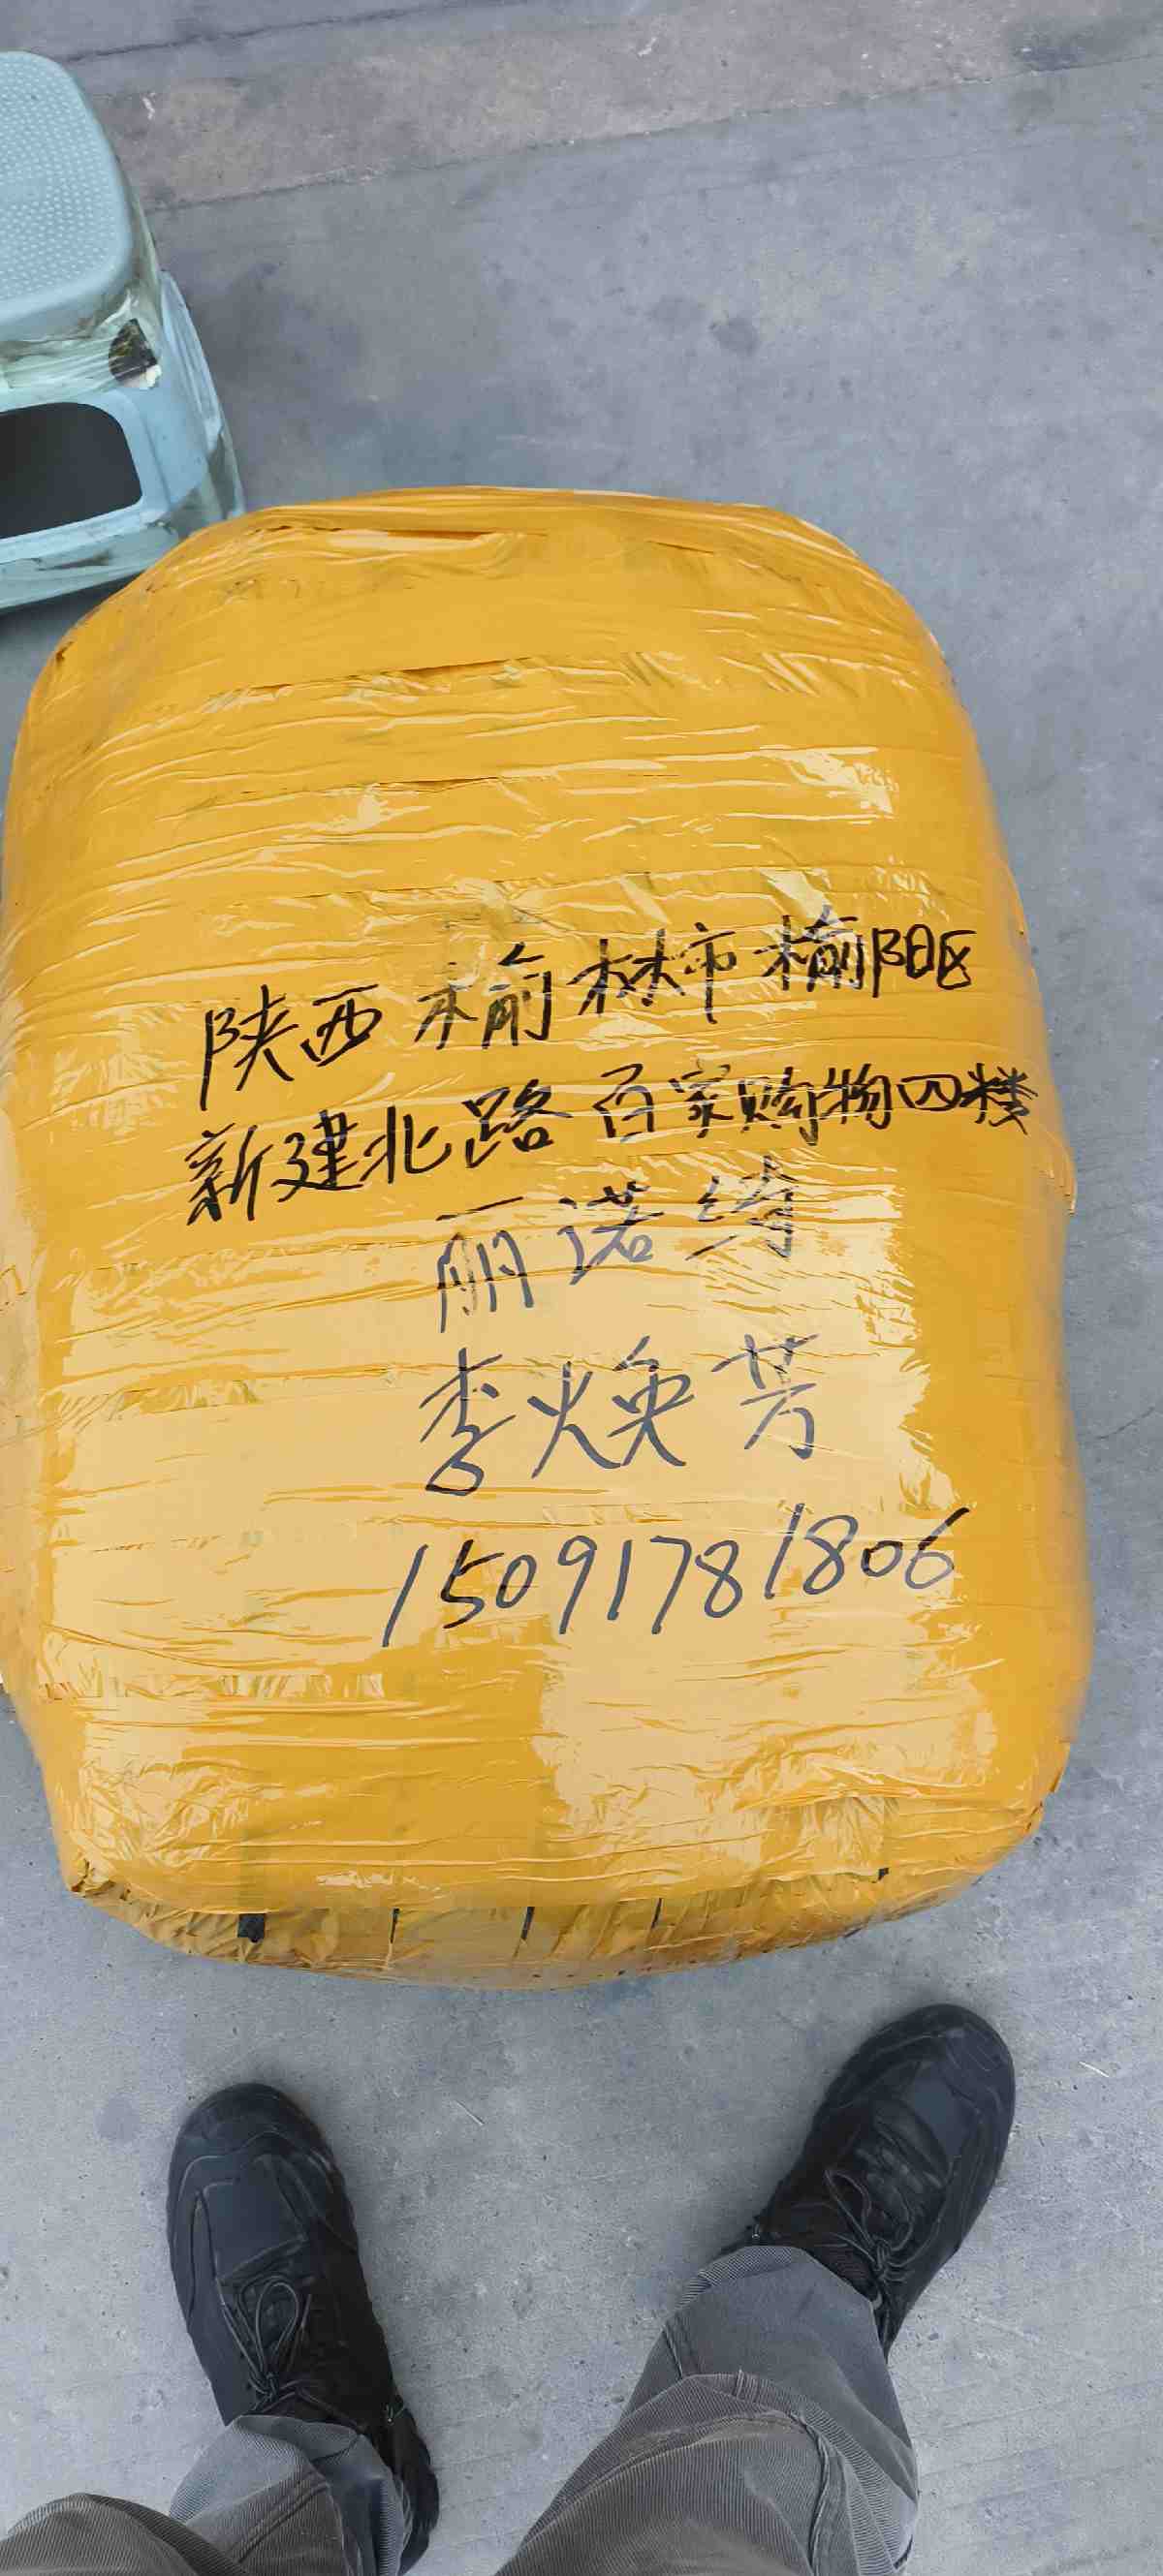 陕西榆林市榆阳区
新建北路百家购物四楼
丽诺绮
李焕芳
15091781806